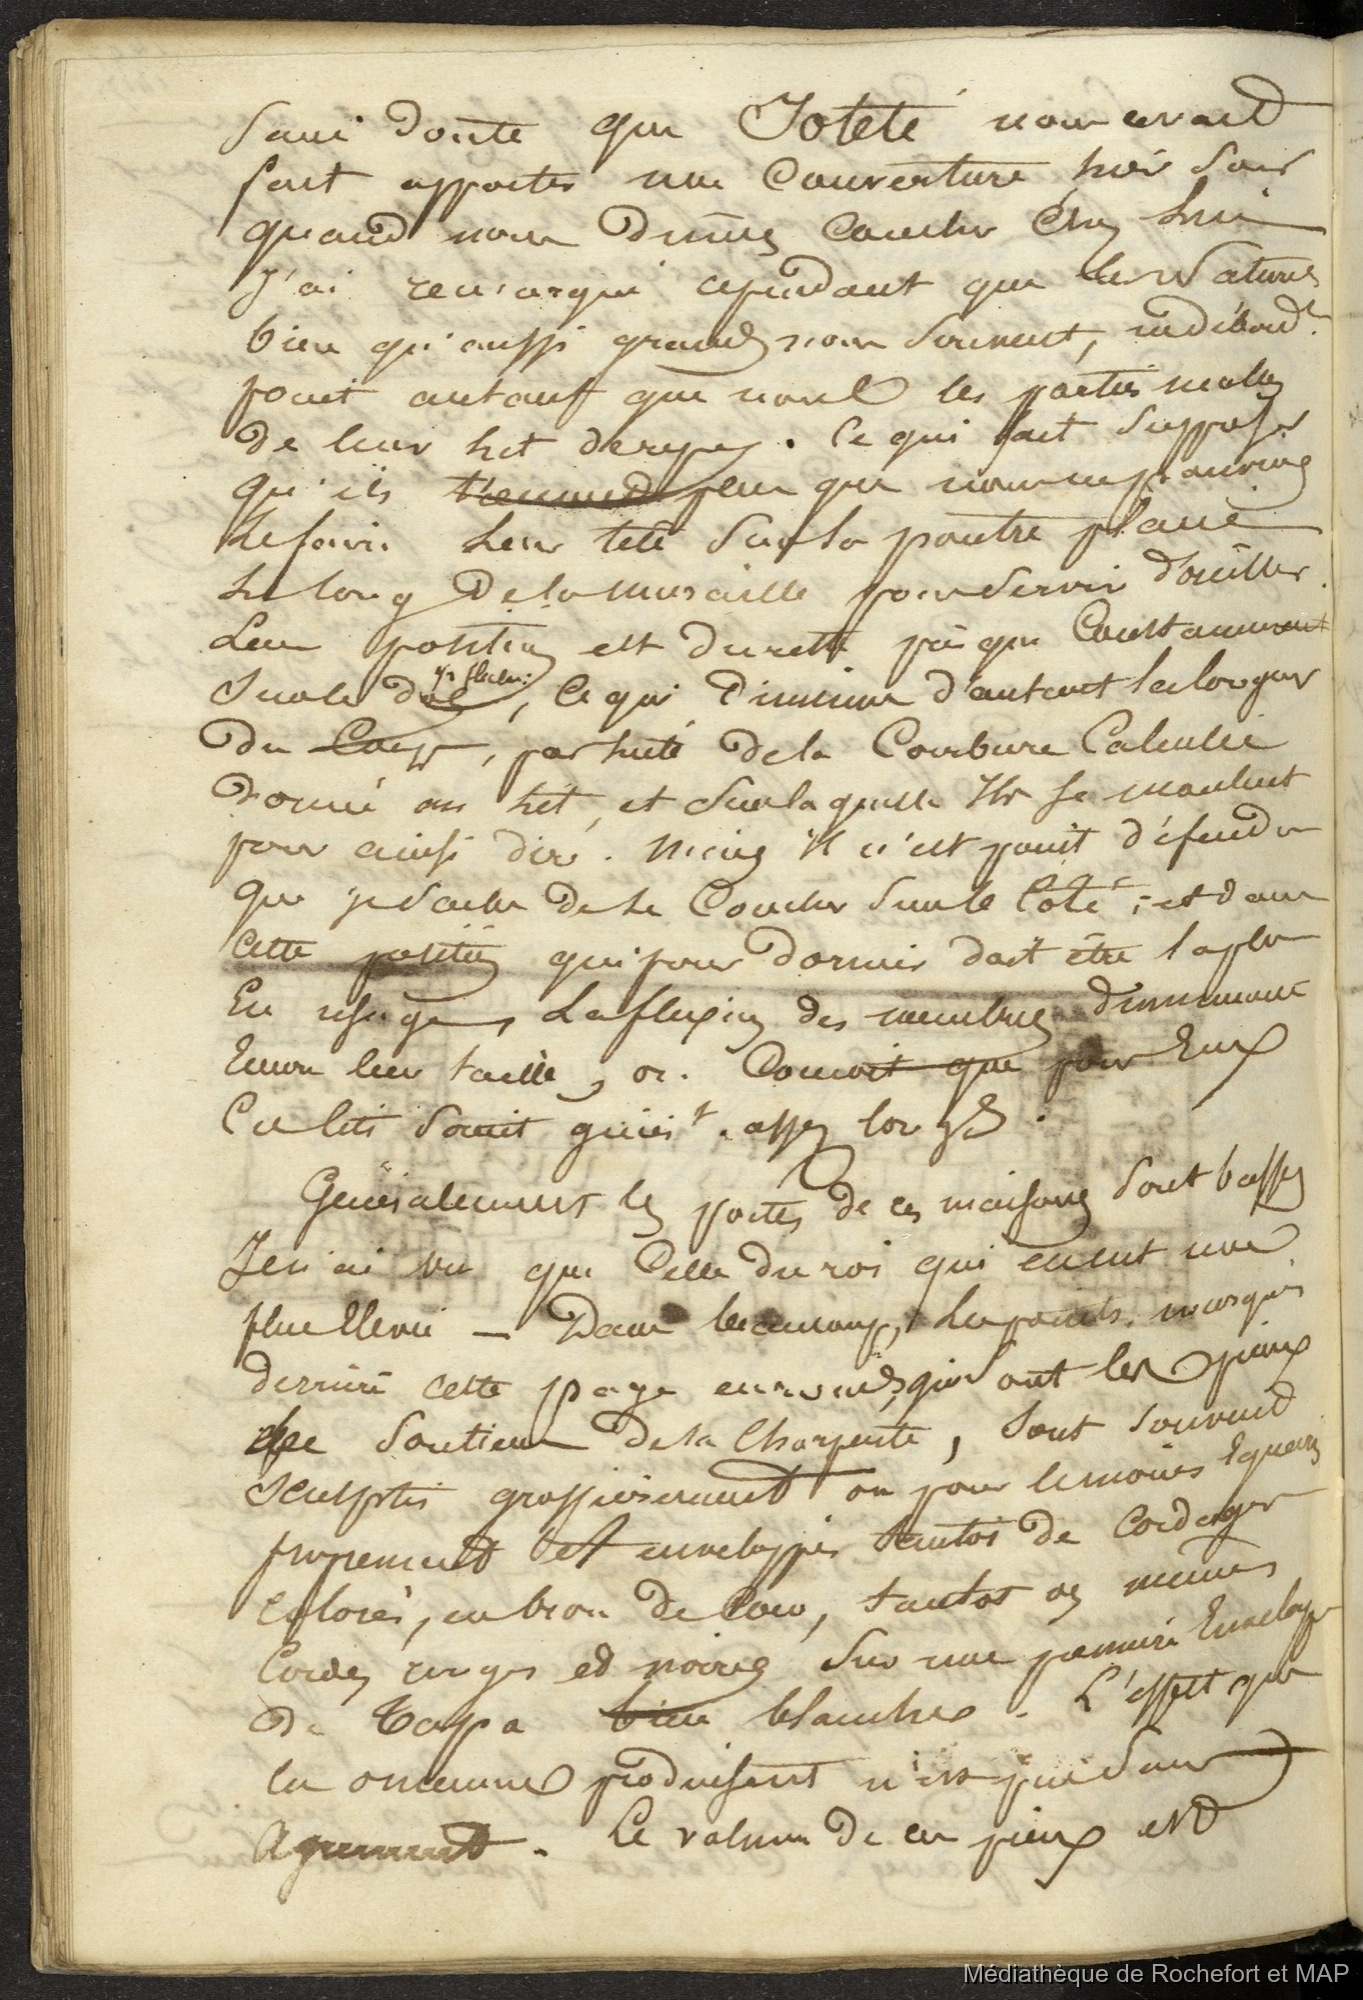 Sans doute que Toteté nous avait
fait apporter une Couverture hier soir
quand nous dumes coucher Chez lui
J'ai remarqué cependant que les Naturels
bien qu'aussi grands que nous
font autant que nous les parties molles
de leur lit de repos. Ce qui fait supposer
qu'ils tiennent peu que nous ne pouvions
le faire leur tête sur la poutre placée
le long de la muraille pour servir d'oreiller.
Leur position est du reste presque Constamment
sur le dos, ce qui diminue d'autant la longueur
du Corps, par suite de la Courbure Calculée
donnée au lit, et sur laquelle Ils se moulent
pour ainsi dire. Mais il n'est point défendu
que je sache de se Coucher sur le Côté, et dans
cette position qui pour dormir doit être la plus
En usage, La flexion des membres diminuant
Encore leur taille, on Conçoit que pour Eux
Ces lits soient assez longs.
Généralement les portes de ces maisons sont basses
Je n'ai vu que Celle du roi qui en eut une
plus Elevée — Dans beaucoup, les points marqués
derrière cette page en ronds, qui sont les pieux
de Soutien de la Charpente, sont souvent
sculptés grossièrement ou pour le moins Equarris
proprement et enveloppés tantôt de Cordages
colorés, en brou de Coco, tantôt de mêmes
Cordes rouges et noires sur une première Enveloppe
de Tapa bien blanche. L'effet que
ces ornemens produisent n'est pas sans
Agrément. Le volume de ces pieux est
y. fléch.
Médiathèque de Rochefort et MAP